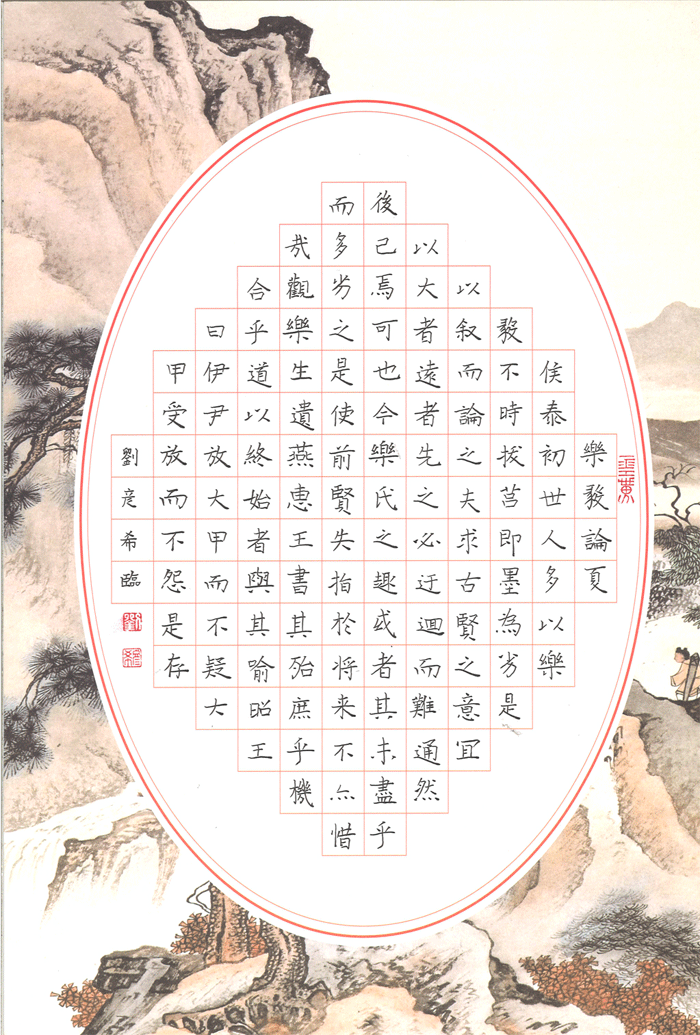 樂毅論夏
侯泰初世人多以樂
毅不時拔莒即墨為劣是
以叙而論之夫求古賢之意宜
以大者遠者先之必迂迴而難通然
後已焉可也今樂氏之趣或者其未盡乎
而多劣之是使前賢失指於将来不亦惜
哉觀樂生遺燕惠王書其殆庶乎機
合乎道以終始者與其喻昭王
曰伊尹放大甲而不疑大
甲受放而不怨是存
劉彦希臨